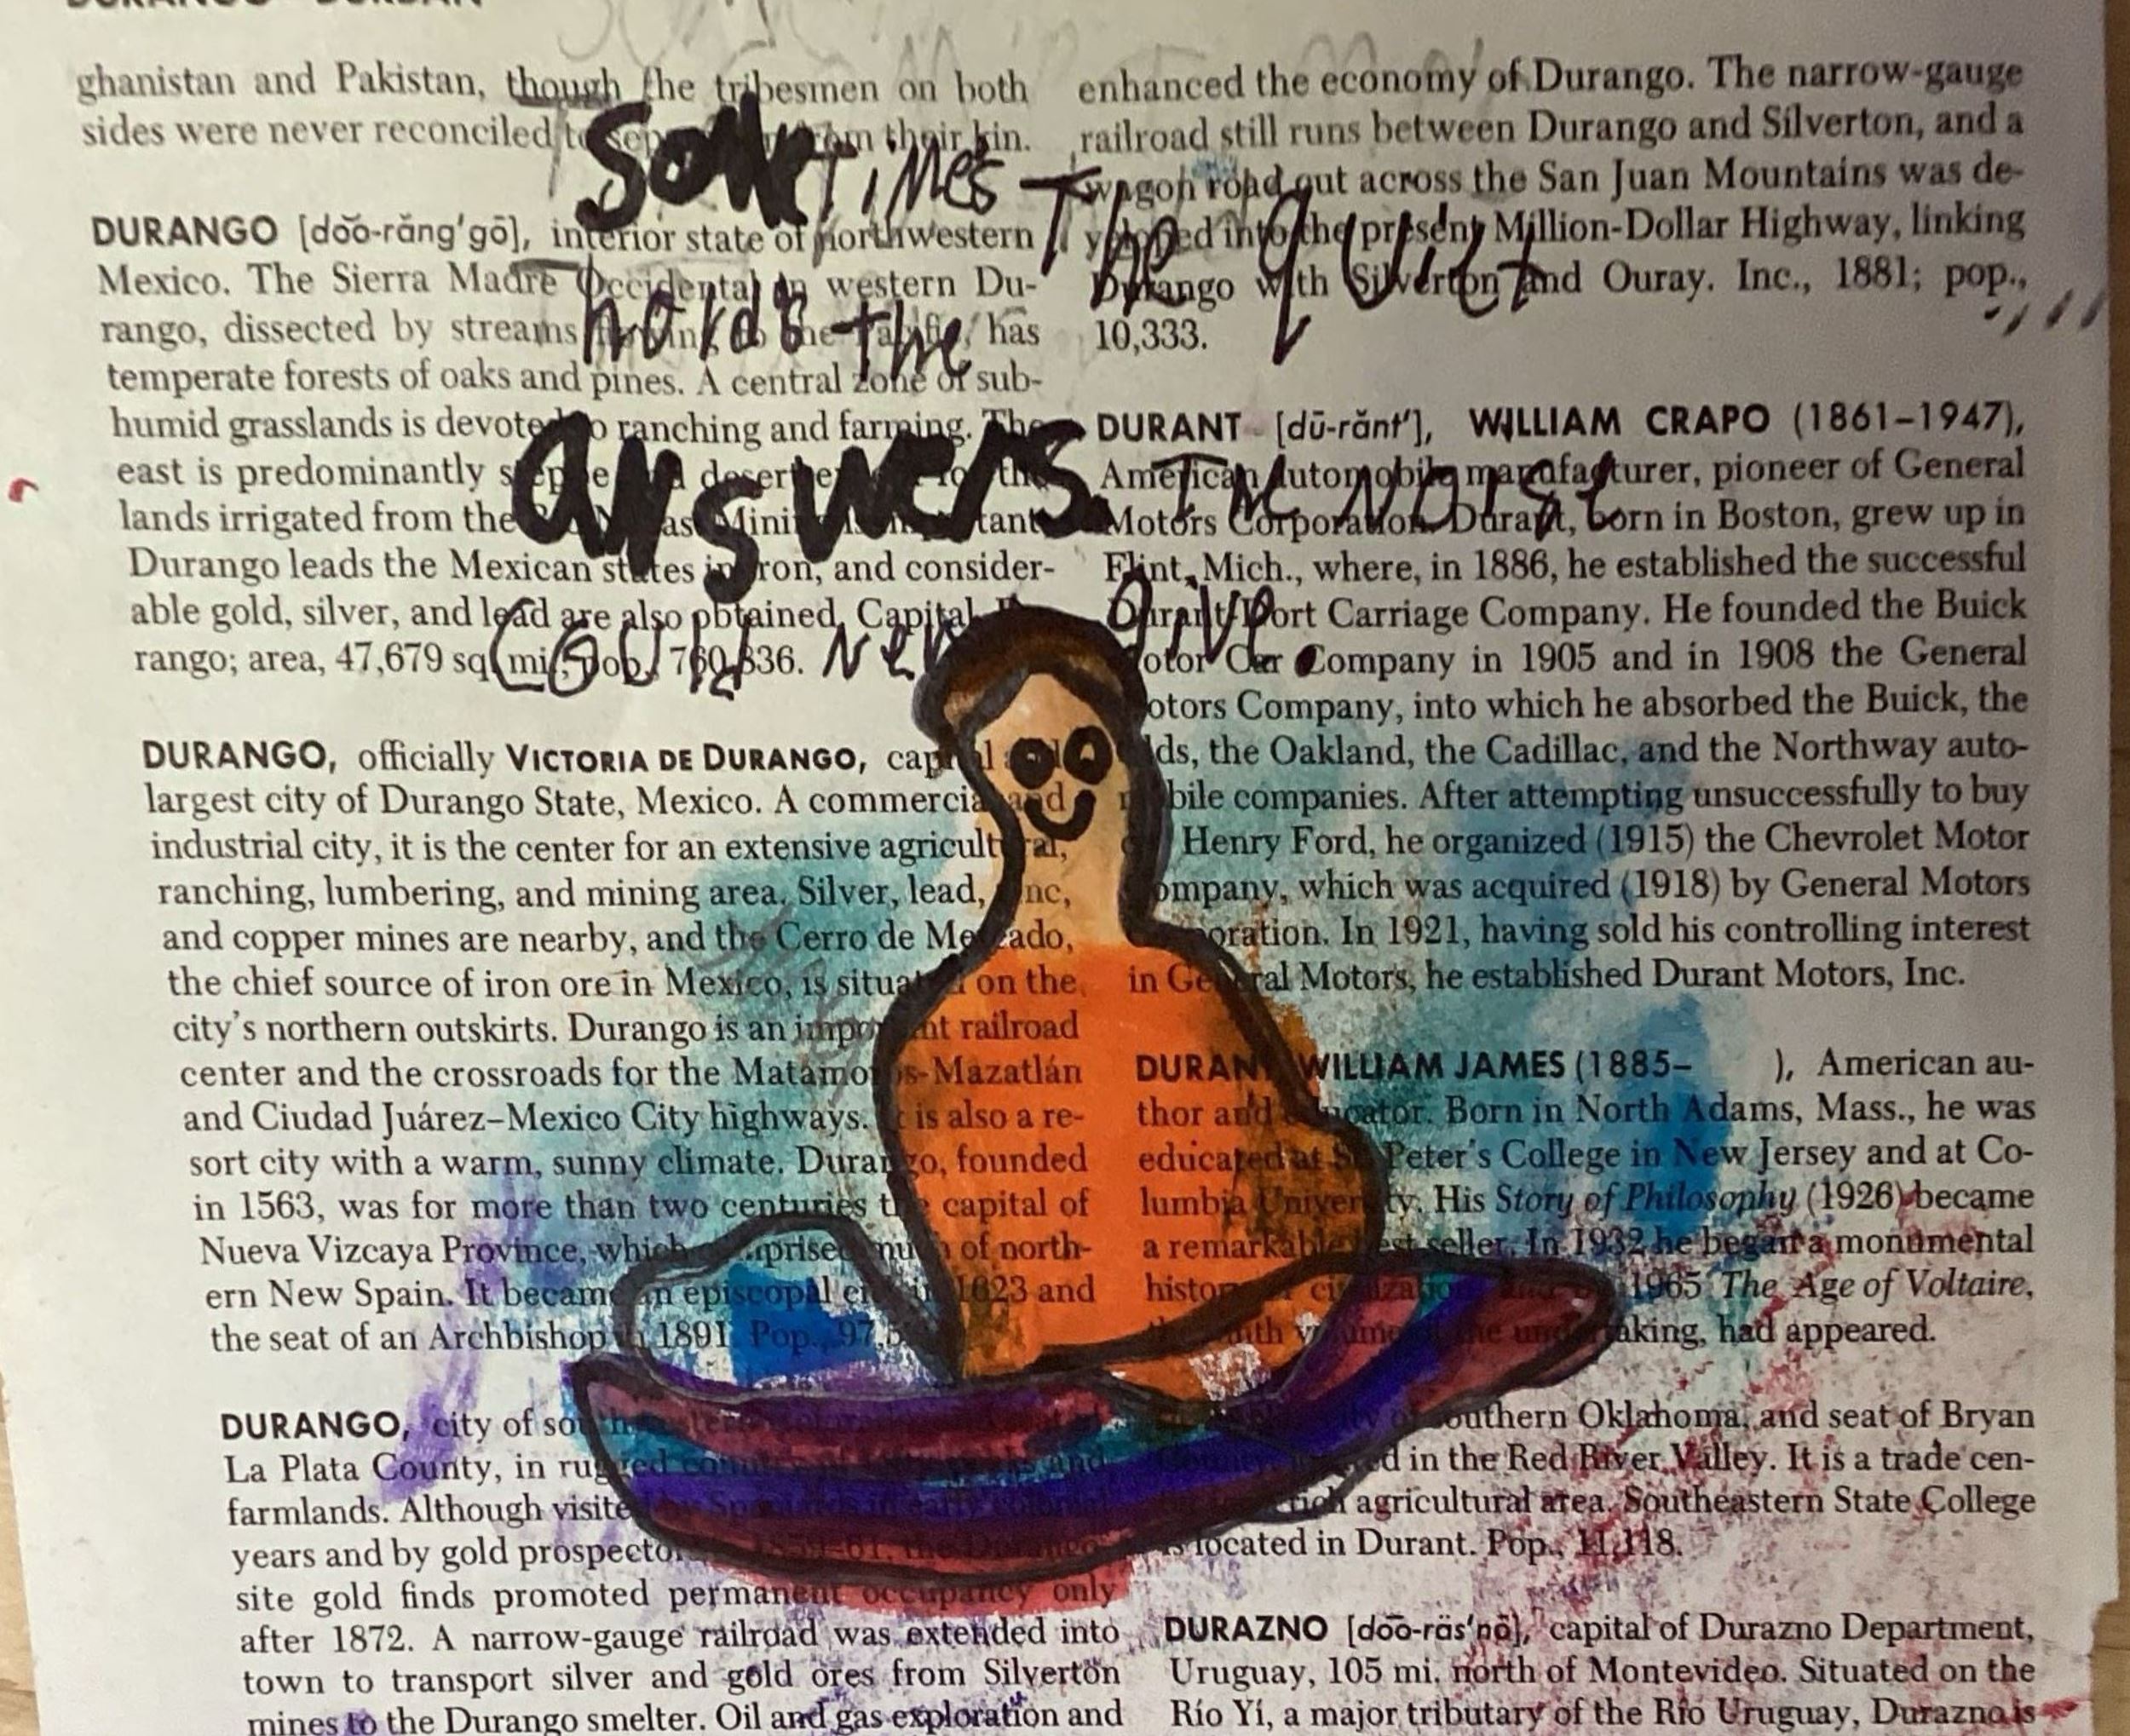 DURANGO - DURBAN
Sometimes The quiet
holds the
answers. The NOISE
could Nev give
ghanistan and Pakistan, though the tribesmen on both
sides were never reconciled to from their kin.
DURANGO [do͝o-răng'gō], interior state of northwestern
Mexico. The Sierra Madre Occidental in western Du-
rango, dissected by streams the has
temperate forests of oaks and pines. A central zone of sub-
humid grasslands is devoted to ranching and farming. The
east is predominantly the
lands irrigated from the
Durango leads the Mexican states in iron, and consider-
able gold, silver, and lead are also obtained. Capital,
rango; area, 47,679 sq. mi.; pop.,
DURANGO, officially VICTORIA DE DURANGO, capital and
largest city of Durango State, Mexico. A commercial and
industrial city, it is the center for an extensive agricultural,
ranching, lumbering, and mining area. Silver, lead, zinc,
and copper mines are nearby, and the Cerro de Mercado,
the chief source of iron ore in Mexico, is situated on the
city's northern outskirts. Durango is an important railroad
center and the crossroads for the Matamoros-Mazatlán
and Ciudad Juárez–Mexico City highways. It is also a re-
sort city with a warm, sunny climate. Durango, founded
in 1563, was for more than two centuries the capital of
Nueva Vizcaya Province, which comprised much of north-
ern New Spain. It became an episcopal in 1623 and
the seat of an Archbishop in 1891. Pop.,
DURANGO, city of
La Plata County, in rugged and
farmlands. Although visited by Spaniards in early colonial
years and by gold prospectors
site gold finds promoted permanent occupancy only
after 1872. A narrow-gauge railroad was extended into
town to transport silver and gold ores from Silverton
mines to the Durango smelter. Oil and gas exploration and
enhanced the economy of Durango. The narrow-gauge
railroad still runs between Durango and Silverton, and a
wagon road out across the San Juan Mountains was de-
veloped into the present Million-Dollar Highway, linking
Durango with Silverton and Ouray. Inc., 1881; pop.,
10,333.
DURANT [dū-rănt'], WILLIAM CRAPO (1861–1947),
American automobile manufacturer, pioneer of General
Motors Corporation. Durant, born in Boston, grew up in
Flint, Mich., where, in 1886, he established the successful
Durant-Dort Carriage Company. He founded the Buick
Motor Car Company in 1905 and in 1908 the General
Motors Company, into which he absorbed the Buick, the
Olds, the Oakland, the Cadillac, and the Northway auto-
mobile companies. After attempting unsuccessfully to buy
Henry Ford, he organized (1915) the Chevrolet Motor
Company, which was acquired (1918) by General Motors
Corporation. In 1921, having sold his controlling interest
in General Motors, he established Durant Motors, Inc.
DURANT, WILLIAM JAMES (1885– ), American au-
thor and educator. Born in North Adams, Mass., he was
educated at St. Peter's College in New Jersey and at Co-
lumbia University. His Story of Philosophy (1926) became
a remarkable best seller. In 1932 he began a monumental
history of civilization 1965 The Age of Voltaire,
the volume of the undertaking, had appeared.
of southern Oklahoma, and seat of Bryan
County, located in the Red River Valley. It is a trade cen-
rich agricultural area. Southeastern State College
is located in Durant. Pop., 11,118.
DURAZNO [do͞o-räs'nō], capital of Durazno Department,
Uruguay, 105 mi. north of Montevideo. Situated on the
Río Yí, a major tributary of the Río Uruguay, Durazno is